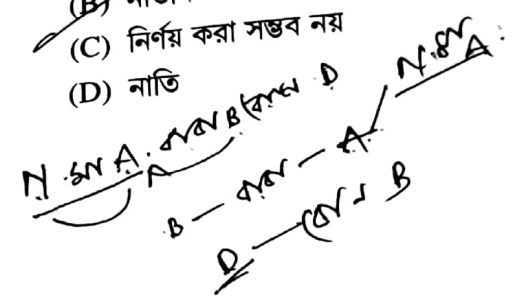 (B) নাতনি
(C) নির্ণয় করা সম্ভব নয়
(D) নাতি
N. মা A. বাবা B বোন D
A
N. মা A.
B — বাবা — A
D — বোন B